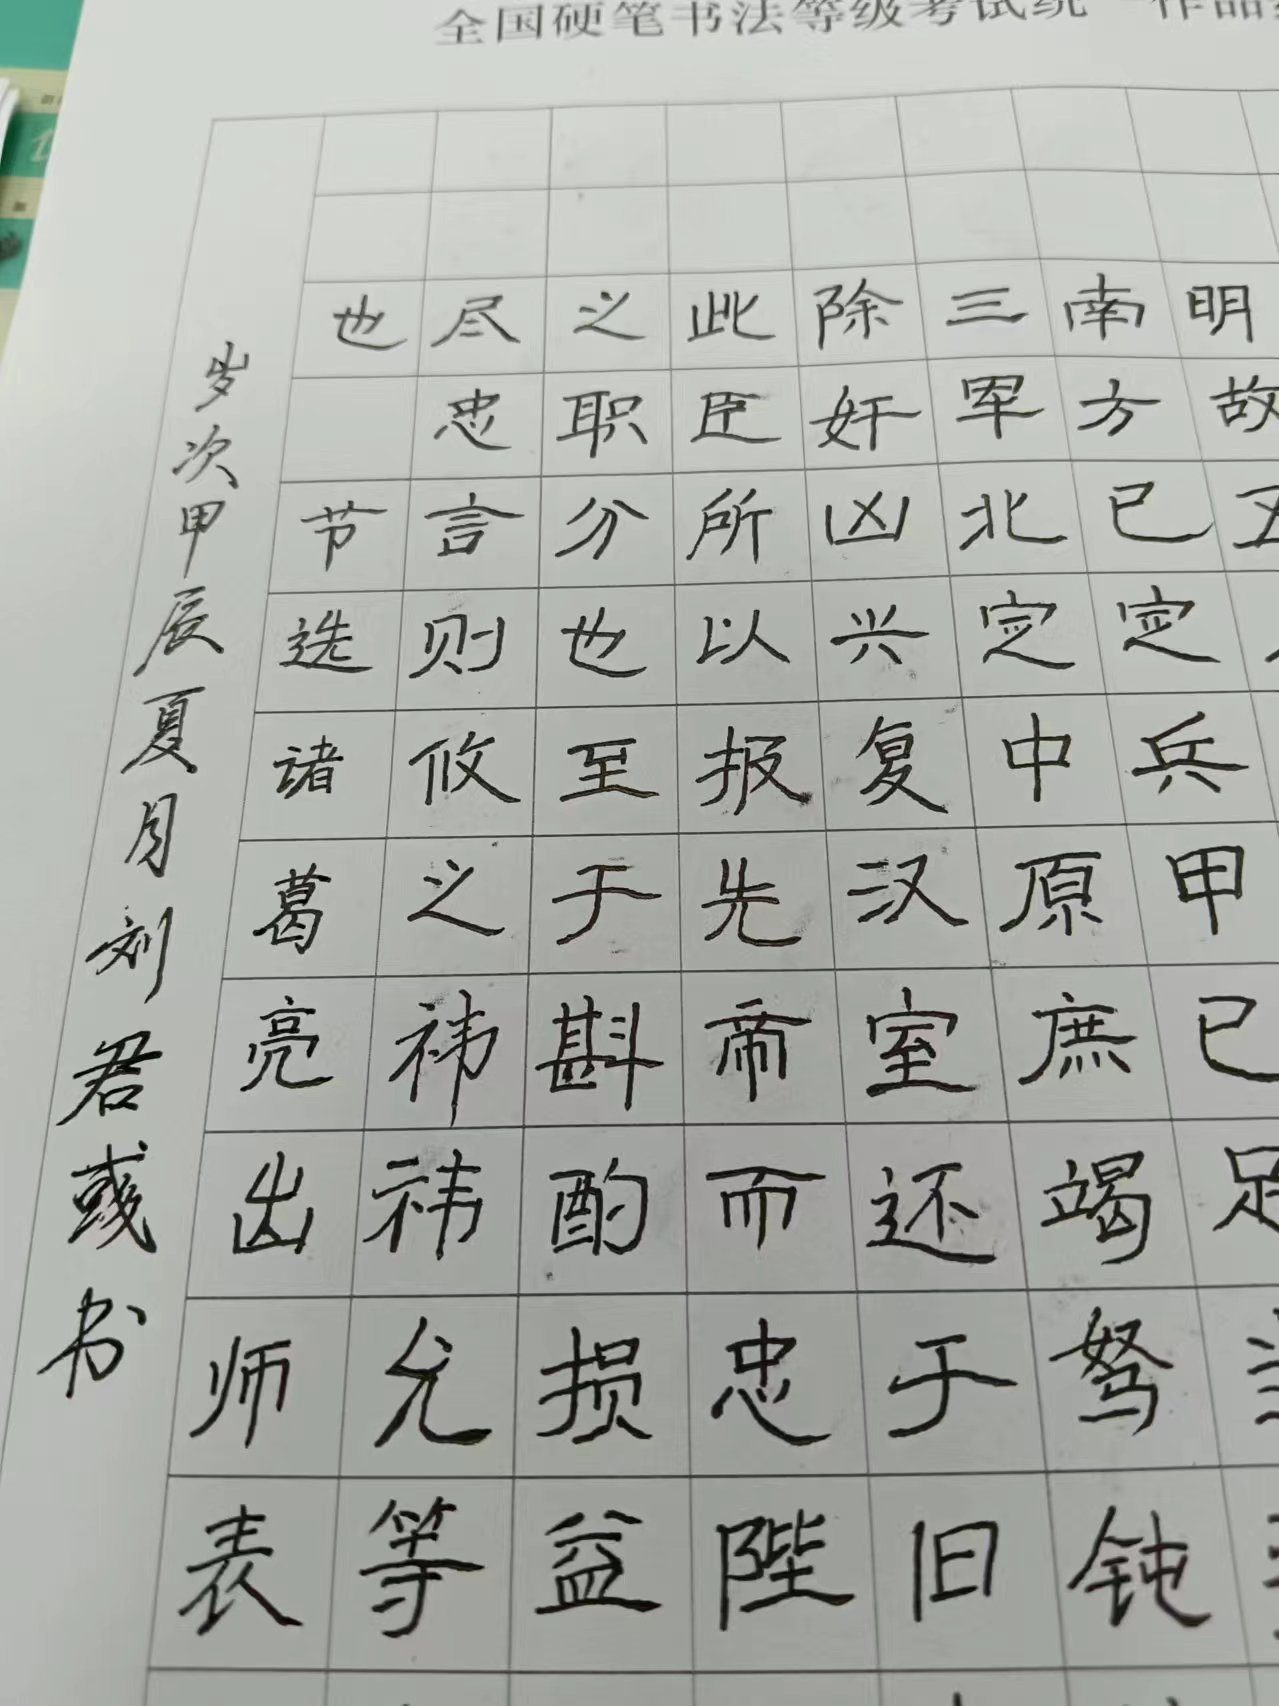 全国硬笔书法等级考试统一作品
明故五
南方已定兵甲已足
三军北定中原庶竭驽钝
除奸凶兴复汉室还于旧
此臣所以报先帝而忠陛
之职分也至于斟酌损益
尽忠言则攸之祎祎允等
也 节选诸葛亮出师表
岁次甲辰夏月刘君彧书